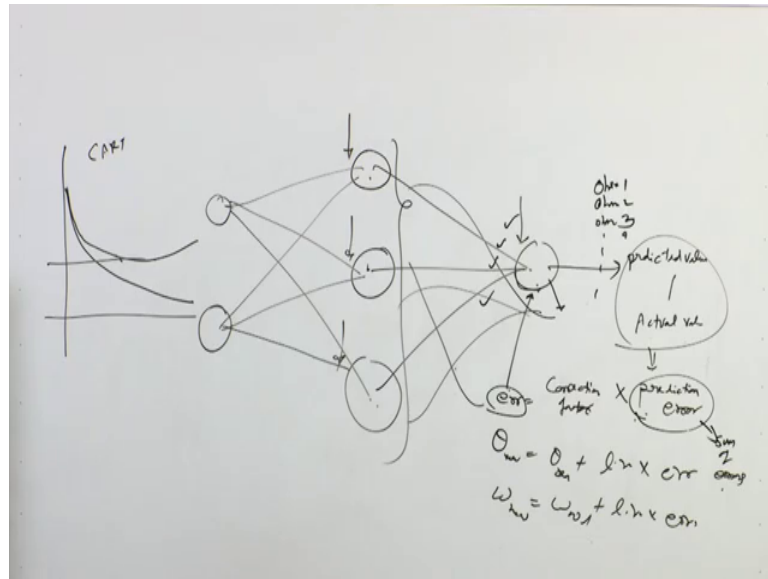 CART
Obsn 1
Obsn 2
Obsn 3
predicted value
Actual valu
err = Correction factor × prediction error
θ new = θ old + l.r × err
w new = w old + l.r × err